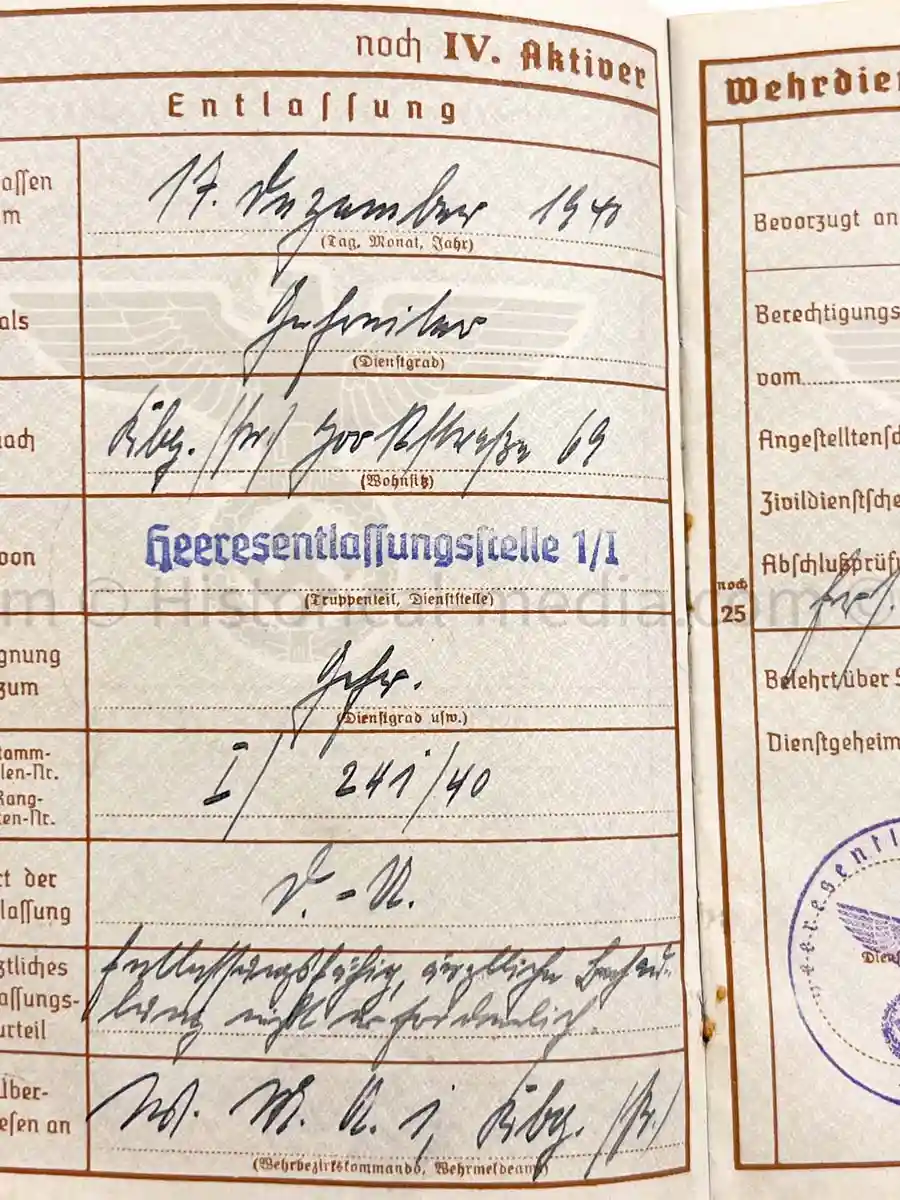 noch IV. Aktiver
Entlassung
assen
m
17. Dezember 1940
(Tag, Monat, Jahr)
als
Gefreiter
(Dienstgrad)
ach
Kbg. /Pr./ Yorkstraße 69
(Wohnsitz)
von
Heeresentlassungsstelle 1/I
(Truppenteil, Dienststelle)
gnung
zum
Gefr.
(Dienstgrad usw.)
tamm-
len-Nr.
Rang-
ten-Nr.
I/ 241/40
rt der
lassung
D.-U.
ztliches
assungs-
urteil
Entlassungsfähig, ärztliche Behand-
lung nicht erforderlich.
Über-
esen an
W. M. A. 1, Kbg. /Pr./
(Wehrbezirkskommando, Wehrmeldeamt)
Wehrdien
Bevorzugt an
Berechtigungs
vom
Angestelltensch
Zivildienstsche
Abschlußprüfu
noch
25
Belehrt über S
Dienstgeheim
Heeresentl
Dien
m © Historical-media.com ©